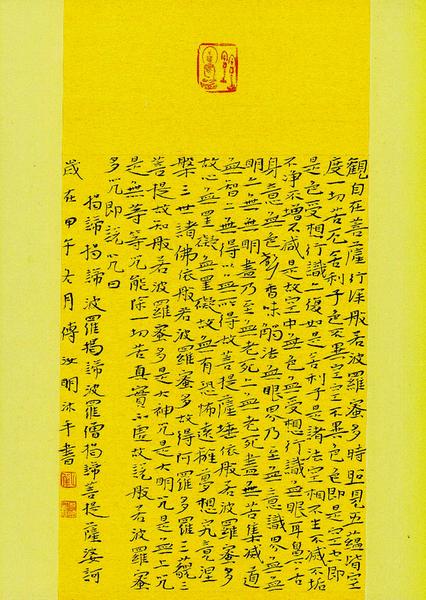 觀自在菩薩行深般若波羅蜜多時照見五蘊皆空
度一切苦厄舍利子色不異空空不異色色即是空空即
是色受想行識亦復如是舍利子是諸法空相不生不滅不垢
不淨不增不減是故空中無色無受想行識無眼耳鼻舌
身意無色聲香味觸法無眼界乃至無意識界無無
明亦無無明盡乃至無老死亦無老死盡無苦集滅道
無智亦無得以無所得故菩提薩埵依般若波羅蜜多
故心無罣礙無罣礙故無有恐怖遠離夢想究竟涅
槃三世諸佛依般若波羅蜜多故得阿耨多羅三藐三
菩提故知般若波羅蜜多是大神咒是大明咒是無上咒
是無等等咒能除一切苦真實不虛故說般若波羅蜜
多咒即說咒曰
揭諦揭諦波羅揭諦波羅僧揭諦菩提薩婆訶
歲在甲午月傅汝明沐手書